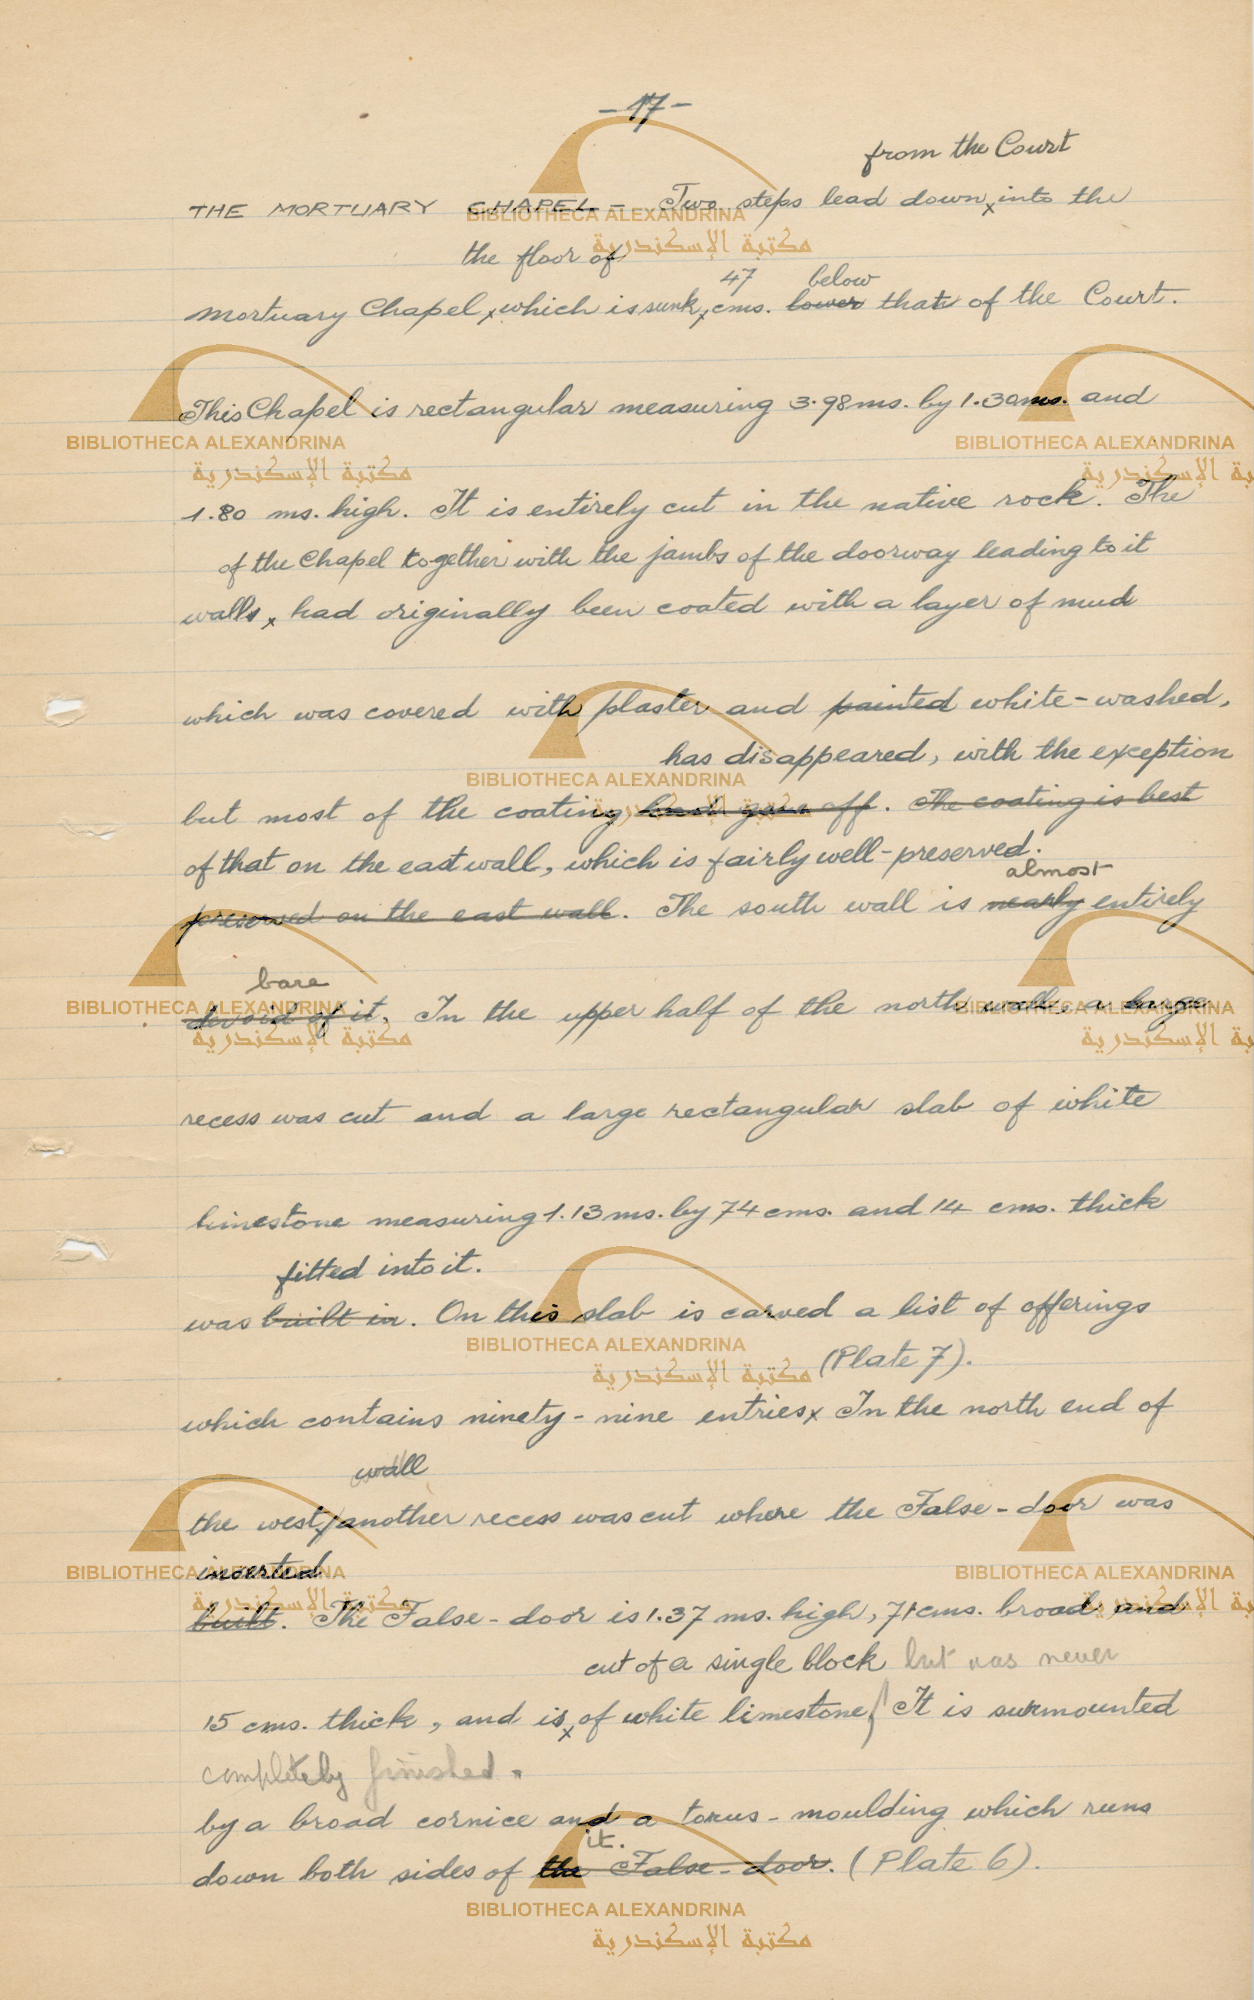 -17-
from the Court
THE MORTUARY CHAPEL - Two steps lead down x into the
the floor of
47 below
mortuary Chapel, x which is sunk x cms. lower that of the Court.
This Chapel is rectangular measuring 3.98 ms. by 1.30 ms. and
1.80 ms. high. It is entirely cut in the native rock. The
of the Chapel together with the jambs of the doorway leading to it
walls x had originally been coated with a layer of mud
which was covered with plaster and painted white-washed,
has disappeared, with the exception
but most of the coating had gone off. The coating is best
of that on the east wall, which is fairly well-preserved.
almost
preserved on the east wall. The south wall is nearly entirely
bare
devoid of it. In the upper half of the north wall, a large
recess was cut and a large rectangular slab of white
limestone measuring 1.13 ms. by 74 cms. and 14 cms. thick
fitted into it.
was built in. On this slab is carved a list of offerings
(Plate 7).
which contains ninety-nine entries x In the north end of
wall
the west x another recess was cut where the False-door was
inserted
built. The False-door is 1.37 ms. high, 71 cms. broad and
cut of a single block but was never
15 cms. thick, and is x of white limestone. It is surmounted
completely finished.
by a broad cornice and a torus-moulding which runs
it.
down both sides of the False-door. (Plate 6).
BIBLIOTHECA ALEXANDRINA
مكتبة الإسكندرية